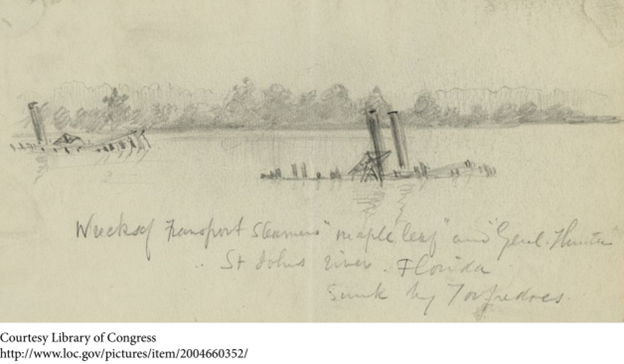 Wrecks of Transport Steamers "maple leaf" and "Genl. Hunter"
St Johns river. Florida
Sunk by Torpedoes.
Courtesy Library of Congress
http://www.loc.gov/pictures/item/2004660352/